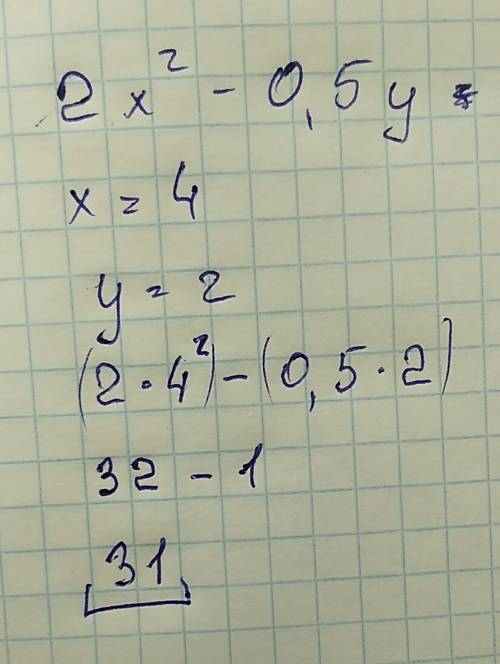 2x² - 0,5y =
x = 4
y = 2
(2 · 4²) - (0,5 · 2)
32 - 1
31